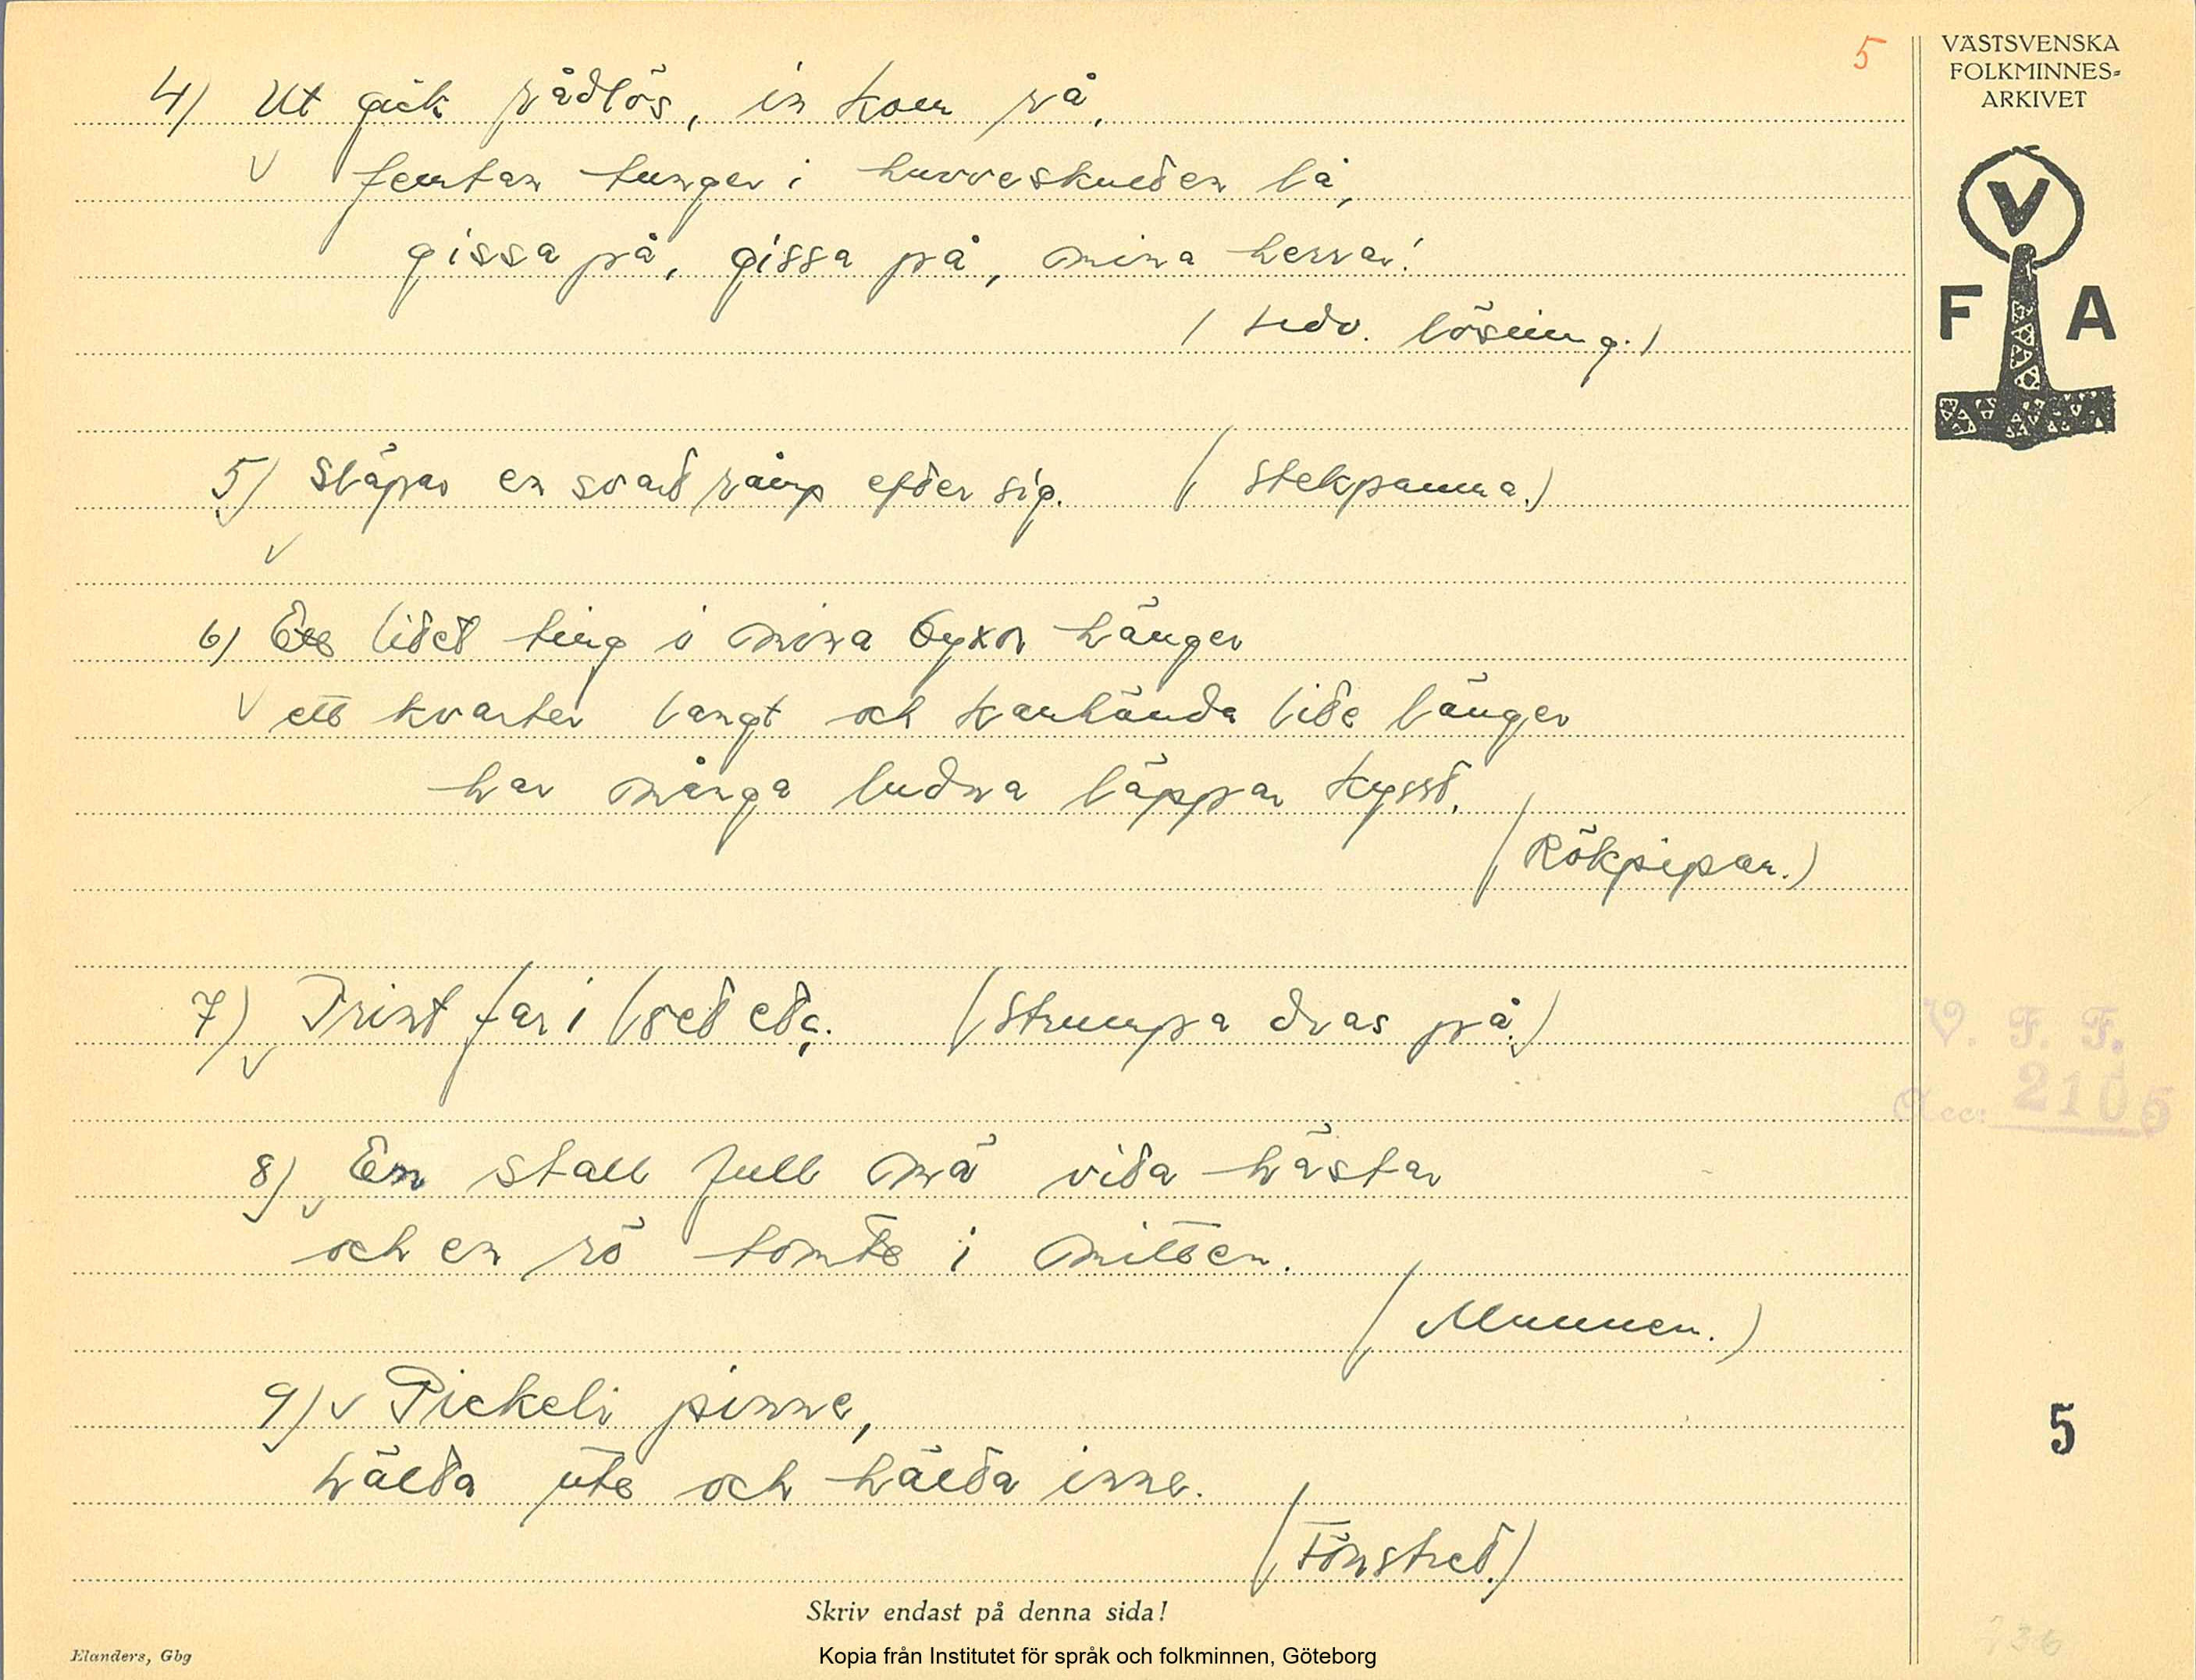 5
VÄSTSVENSKA
FOLKMINNES-
ARKIVET
V
F A
4) Ut gick rådlös, in kom rå,
femtan tunger i huvveskulden lå,
gissa på, gissa på, mina herrar!
( sedv. lösning.)
5) Släpar en svart råmp efter sig. (Stekpanna.)
6) Ett litet ting i mina byxor hänger
ett kvarter langt och kanhända lite länger
har många ludna läppar kysst.
(Rökpipan.)
7) Trint far i loet etc. (Strumpa dras på.)
8) En stall full mä vita hästar
och en rö tomte i mitten.
(Munnen.)
9) Pickeli pinne,
hälta ute och hälta inne.
(Fönstret.)
V. F. F.
Acc: 2105
5
Skriv endast på denna sida!
Elanders, Gbg
Kopia från Institutet för språk och folkminnen, Göteborg